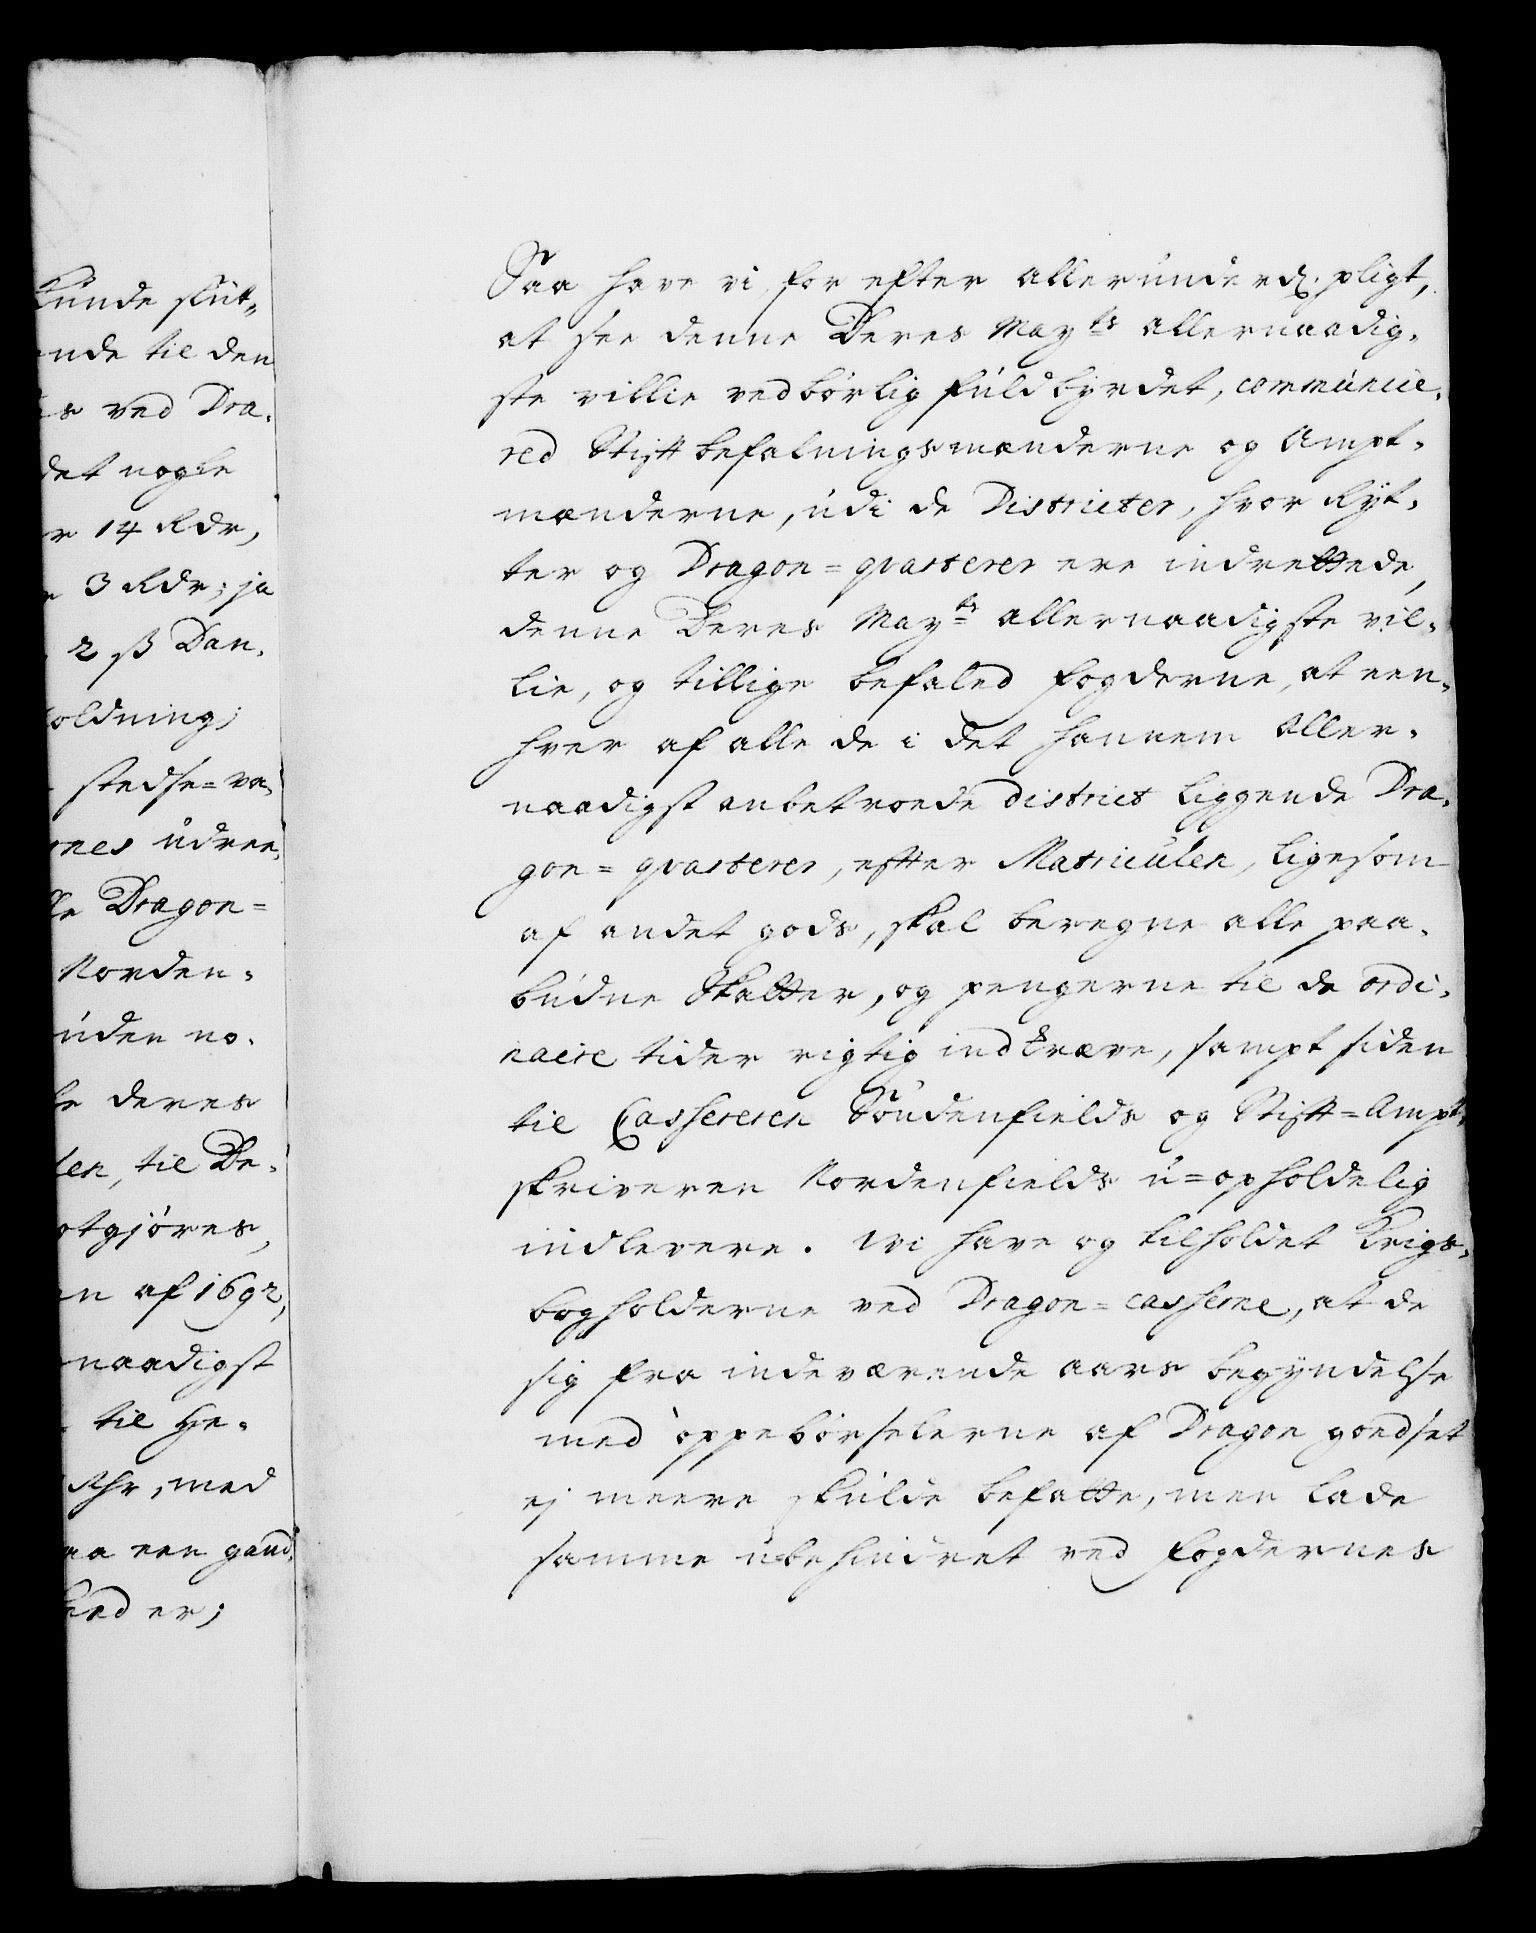 Kunde slut-
ende til den
es ved Dra-
det nogle
r 14 Rdr,
r 3 Rdr; ja
2 ß Dan-
holdning;
stedse=va-
nes udree-
lle Dragon=
Norden-
uden no-
deres
len, til De-
otgjøres,
en af 1692,
naadigst
til He-
med
aa een gand-
hed er;
Saa have vi for efter allerunderd. pligt,
at see denne Deres Mayts allernaadig-
ste villie vedbørlig fuldbyrdet, communice-
red Stiftbefalningsmænderne og Ampt-
mænderne, udi de Districter, hvor Ryt-
ter og Dragon=qvarterer ere indrettede,
denne Deres Mayts allernaadigste vil-
lie, og tillige befaled fogderne, at een-
hver af alle de i det hannem Aller-
naadigst anbetroede district liggende Dra-
gon=qvarterer, efter Matriculen, ligesom
af andet gods, skal beregne alle paa-
budne Skatter, og pengerne til de ordi-
naire tider rigtig indkræve, sampt siden
til Cassereren Søndenfields og Stift=Ampt-
skriveren Nordenfields u=opholdelig
indlevere. Wi have og tilholdet Krigs-
bogholderne ved Dragon=casserne, at de
sig fra indeværende aars begyndelse
med oppebørselerne af Dragon goedset
ej meere skulde befatte, men lade
samme ubehindret ved fogdernes